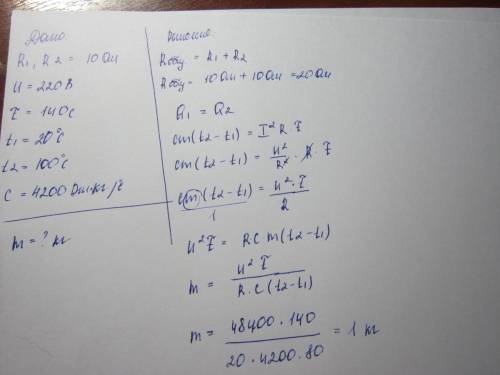 Дано
R1, R2 = 10 Ом
U = 220 В
τ = 140 с
t1 = 20°C
t2 = 100°C
C = 4200 Дж·кг/°C
m = ? кг
Решение
Rобщ = R1 + R2
Rобщ = 10 Ом + 10 Ом = 20 Ом
Q1 = Q2
cm(t2-t1) = I² R τ
cm(t2-t1) = U²/R² · R · τ
cm(t2-t1)/1 = U² · τ/R
U² τ = R C m (t2-t1)
m = U² τ / R · C (t2-t1)
m = 48400 · 140 / 20 · 4200 · 80 = 1 кг